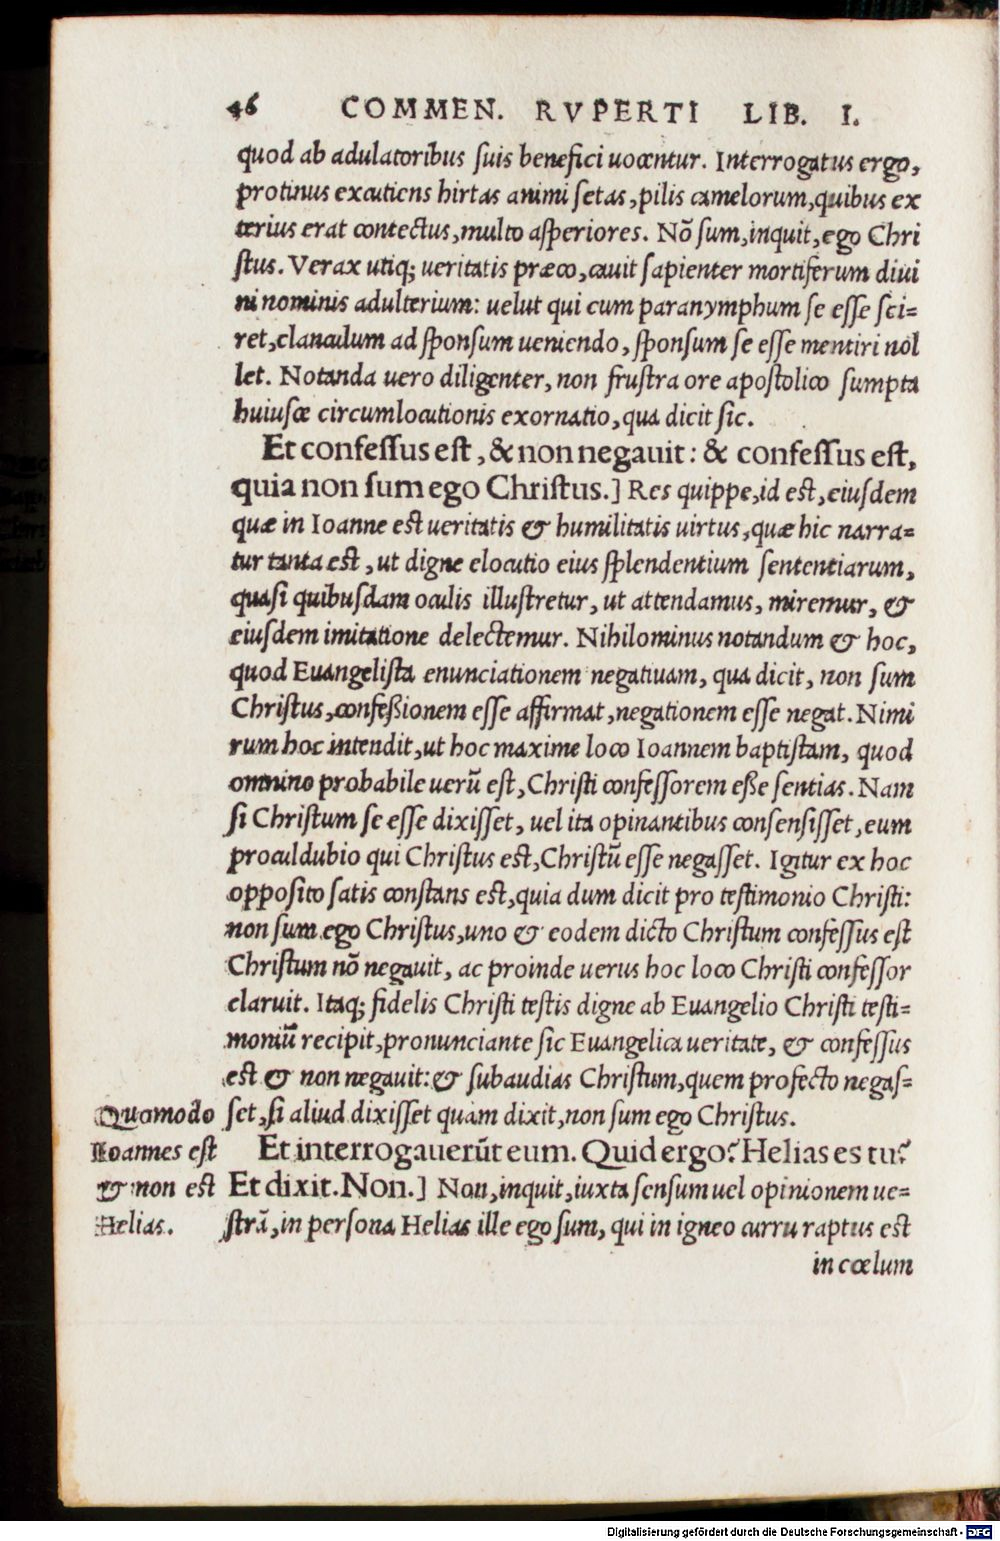 46 COMMEN. RVPERTI LIB. I.
quod ab adulatoribus ſuis benefici uocentur. Interrogatus ergo,
protinus excutiens hirtas animi ſetas, pilis camelorum, quibus ex
terius erat contectus, multo aſperiores. Nõ ſum, inquit, ego Chri
ſtus. Verax utiq; ueritatis præco, cauit ſapienter mortiferum diui
ni nominis adulterium: uelut qui cum paranymphum ſe eſſe ſci=
ret, clanculum ad ſponſum ueniendo, ſponſum ſe eſſe mentiri nol
let. Notanda uero diligenter, non fruſtra ore apoſtolico ſumpta
huiuſce circumlocutionis exornatio, qua dicit ſic.
Et confeſſus eſt, & non negauit: & confeſſus eſt,
quia non ſum ego Chriſtus.] Res quippe, id eſt, eiuſdem
quæ in Ioanne eſt ueritatis & humilitatis uirtus, quæ hic narra=
tur tanta eſt, ut digne elocutio eius ſplendentium ſententiarum,
quaſi quibuſdam oculis illuſtretur, ut attendamus, miremur, &
eiuſdem imitatione delectemur. Nihilominus notandum & hoc,
quod Euangeliſta enunciationem negatiuam, qua dicit, non ſum
Chriſtus, confeßionem eſſe affirmat, negationem eſſe negat. Nimi
rum hoc intendit, ut hoc maxime loco Ioannem baptiſtam, quod
omnino probabile uerũ eſt, Chriſti confeſſorem eße ſentias. Nam
ſi Chriſtum ſe eſſe dixiſſet, uel ita opinantibus conſenſiſſet, eum
proculdubio qui Chriſtus eſt, Chriſtũ eſſe negaſſet. Igitur ex hoc
oppoſito ſatis conſtans eſt, quia dum dicit pro teſtimonio Chriſti:
non ſum ego Chriſtus, uno & eodem dicto Chriſtum confeſſus eſt
Chriſtum nõ negauit, ac proinde uerus hoc loco Chriſti confeſſor
claruit. Itaq; fidelis Chriſti teſtis digne ab Euangelio Chriſti teſti=
moniũ recipit, pronunciante ſic Euangelica ueritate, & confeſſus
eſt & non negauit: & ſubaudias Chriſtum, quem profecto negaſ=
ſet, ſi aliud dixiſſet quàm dixit, non ſum ego Chriſtus.
Et interrogauerũt eum. Quid ergo? Helias es tu?
Et dixit. Non.] Non, inquit, iuxta ſenſum uel opinionem ue=
ſtrã, in perſona Helias ille ego ſum, qui in igneo curru raptus eſt
in cœlum
Quomodo
Ioannes eſt
& non eſt
Helias.
Digitalisierung gefördert durch die Deutsche Forschungsgemeinschaft - DFG